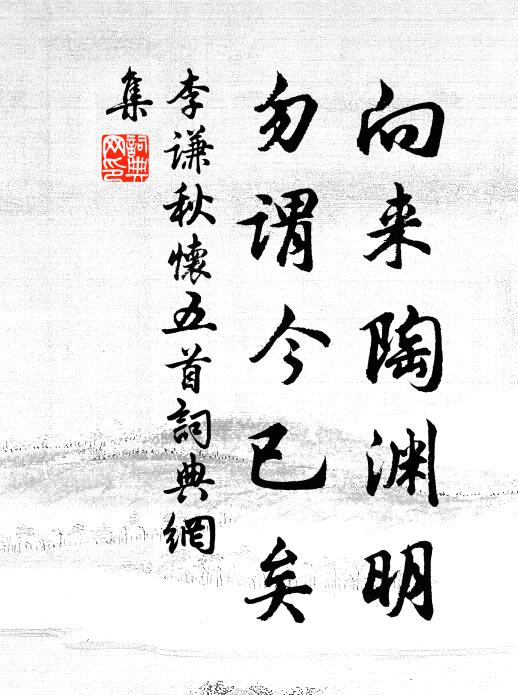 向来陶渊明
勿谓今已矣
李谦秋懷五首詞典網
集
詞典
网印